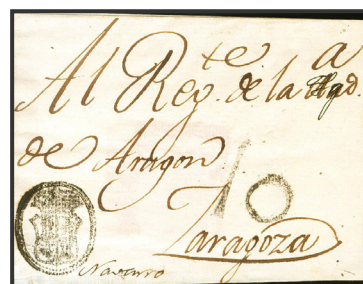 Al Reg.te de la R.l Aud.a
de Aragon
10
Zaragoza
Navarro